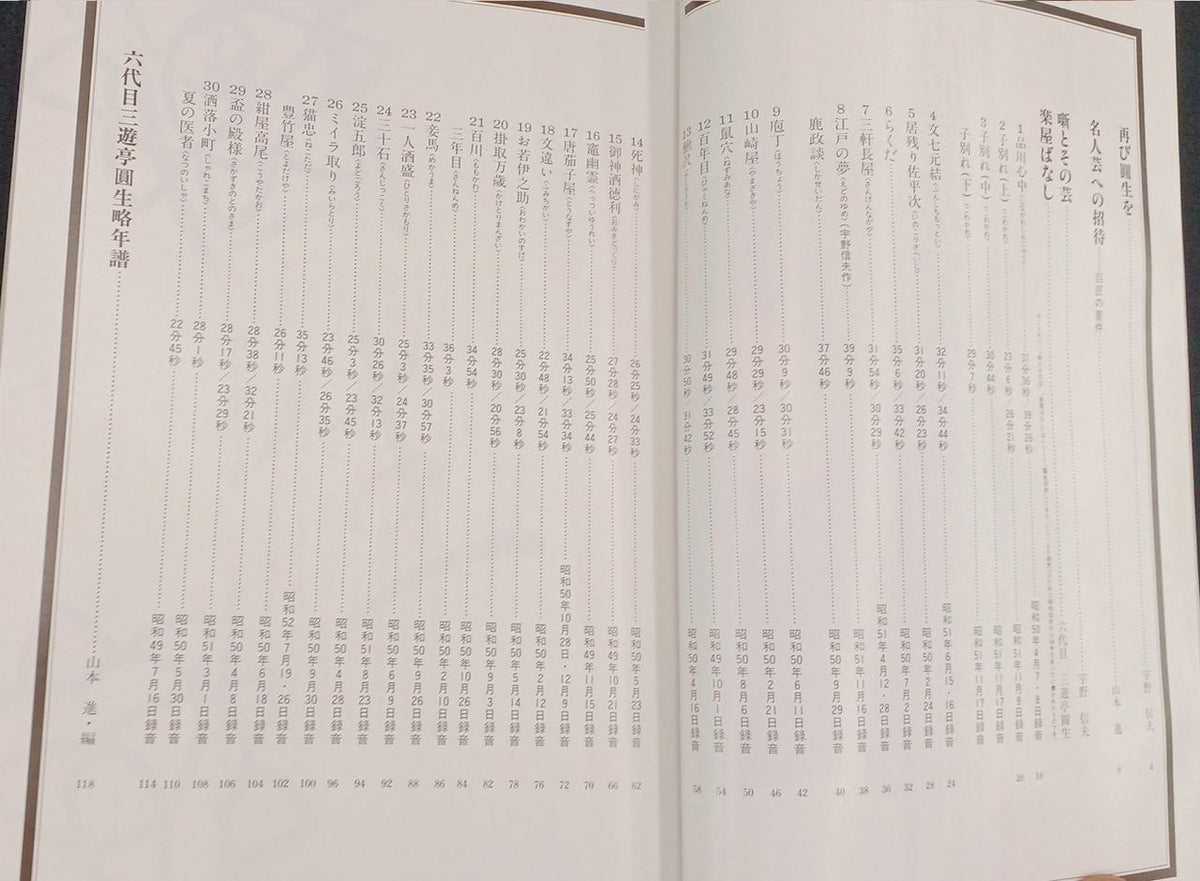 再び圓生を 宇野 信夫 4
名人芸への招待——巨匠の要件 山本 進 6
噺とその芸 宇野 信夫
楽屋ばなし 六代目 三遊亭圓生
1 品川心中 37分36秒／39分26秒 昭和50年4月7・8日録音 18
2 子別れ（上）（こわかれ） 23分6秒／26分21秒 昭和51年11月9日録音 20
3 子別れ（中）（こわかれ） 30分44秒 昭和51年11月17日録音
子別れ（下）（こわかれ） 29分7秒 昭和51年11月17日録音
4 文七元結（ぶんしちもっとい） 32分11秒／34分44秒 昭和51年6月15・16日録音 24
5 居残り佐平次（いのこりさへいじ） 31分20秒／26分23秒 昭和50年2月24日録音 28
6 らくだ 35分6秒／33分42秒 昭和50年7月2日録音 32
7 三軒長屋（さんげんながや） 31分54秒／30分29秒 昭和51年4月12・28日録音 36
8 江戸の夢（えどのゆめ）（宇野信夫作） 39分9秒 昭和51年11月16日録音 38
鹿政談（しかせいだん） 37分46秒 昭和50年9月29日録音 40
9 庖丁（ほうちょう） 30分9秒／30分31秒 昭和50年6月11日録音 42
10 山崎屋（やまざきや） 29分29秒／23分15秒 昭和50年2月21日録音 46
11 鼠穴（ねずみあな） 29分48秒／28分45秒 昭和50年8月4日録音 50
12 百年目（ひゃくねんめ） 31分49秒／33分52秒 昭和49年10月1日録音 54
13 鰍沢 30分50秒／31分42秒 昭和50年4月16日録音 58
14 死神（しにがみ） 26分25秒／24分33秒 昭和50年5月23日録音 62
15 御神酒徳利（おみきどっくり） 27分28秒／24分27秒 昭和50年11月21日録音 66
16 竈幽霊（へっついゆうれい） 25分50秒／25分44秒 昭和49年11月15日録音 70
17 唐茄子屋（とうなすや） 34分13秒／33分34秒 昭和50年10月28日・12月9日録音 72
18 文違い（ふみちがい） 22分48秒／21分54秒 昭和50年2月12日録音 76
19 お若伊之助（おわかいのすけ） 25分30秒／23分8秒 昭和50年5月14日録音 78
20 掛取万歳（かけとりまんざい） 28分30秒／20分56秒 昭和50年9月3日録音 82
21 百川（ももかわ） 34分54秒 昭和50年10月26日録音 84
三年目（さんねんめ） 36分3秒 昭和50年2月10日録音 86
22 妾馬（めかうま） 33分35秒／30分57秒 昭和50年9月2日録音 88
23 一人酒盛（ひとりさかもり） 25分3秒／24分37秒 昭和50年6月9日録音 92
24 三十石（さんじっこく） 30分26秒／32分13秒 昭和51年8月23日録音 94
25 淀五郎（よどごろう） 25分3秒／23分45秒 昭和50年4月28日録音 96
26 ミイラ取り（みいらとり） 23分46秒／26分35秒 昭和50年9月30日録音 100
27 猫忠（ねこただ） 35分13秒 昭和52年7月19・26日録音 102
豊竹屋（とよたけや） 26分11秒 昭和50年6月18日録音 104
28 紺屋高尾（こうやたかお） 28分38秒／32分21秒 昭和50年4月8日録音 106
29 盃の殿様（さかずきのとのさま） 28分17秒／23分29秒 昭和51年3月1日録音 108
30 洒落小町（しゃれこまち） 28分1秒 昭和50年5月30日録音 110
夏の医者（なつのいしゃ） 22分45秒 昭和49年7月16日録音 114
六代目三遊亭圓生略年譜 山本 進・編 118